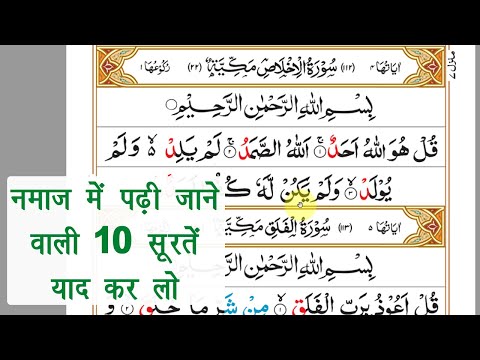 اٰیَاتُهَا ۴ (۱۱۲) سُوْرَةُ الْاِخْلَاصِ مَكِّیَّةٌ (۲۲) رُكُوْعُهَا ۱
بِسْمِ اللّٰهِ الرَّحْمٰنِ الرَّحِیْمِ
قُلْ هُوَ اللّٰهُ اَحَدٌ ۚ۱ اَللّٰهُ الصَّمَدُ ۚ۲ لَمْ یَلِدْ ۙ۬ وَ لَمْ
یُوْلَدْ ۙ۳ وَ لَمْ یَكُنْ لَّهٗ
اٰیَاتُهَا ۵ (۱۱۳) سُوْرَةُ الْفَلَقِ مَكِّیَّةٌ
بِسْمِ اللّٰهِ الرَّحْمٰنِ الرَّحِیْمِ
قُلْ اَعُوْذُ بِرَبِّ الْفَلَقِ ۙ۱ مِنْ شَرِّ مَا خَلَقَ ۙ۲ وَ
नमाज में पढ़ी जाने
वाली 10 सूरतें
याद कर लो